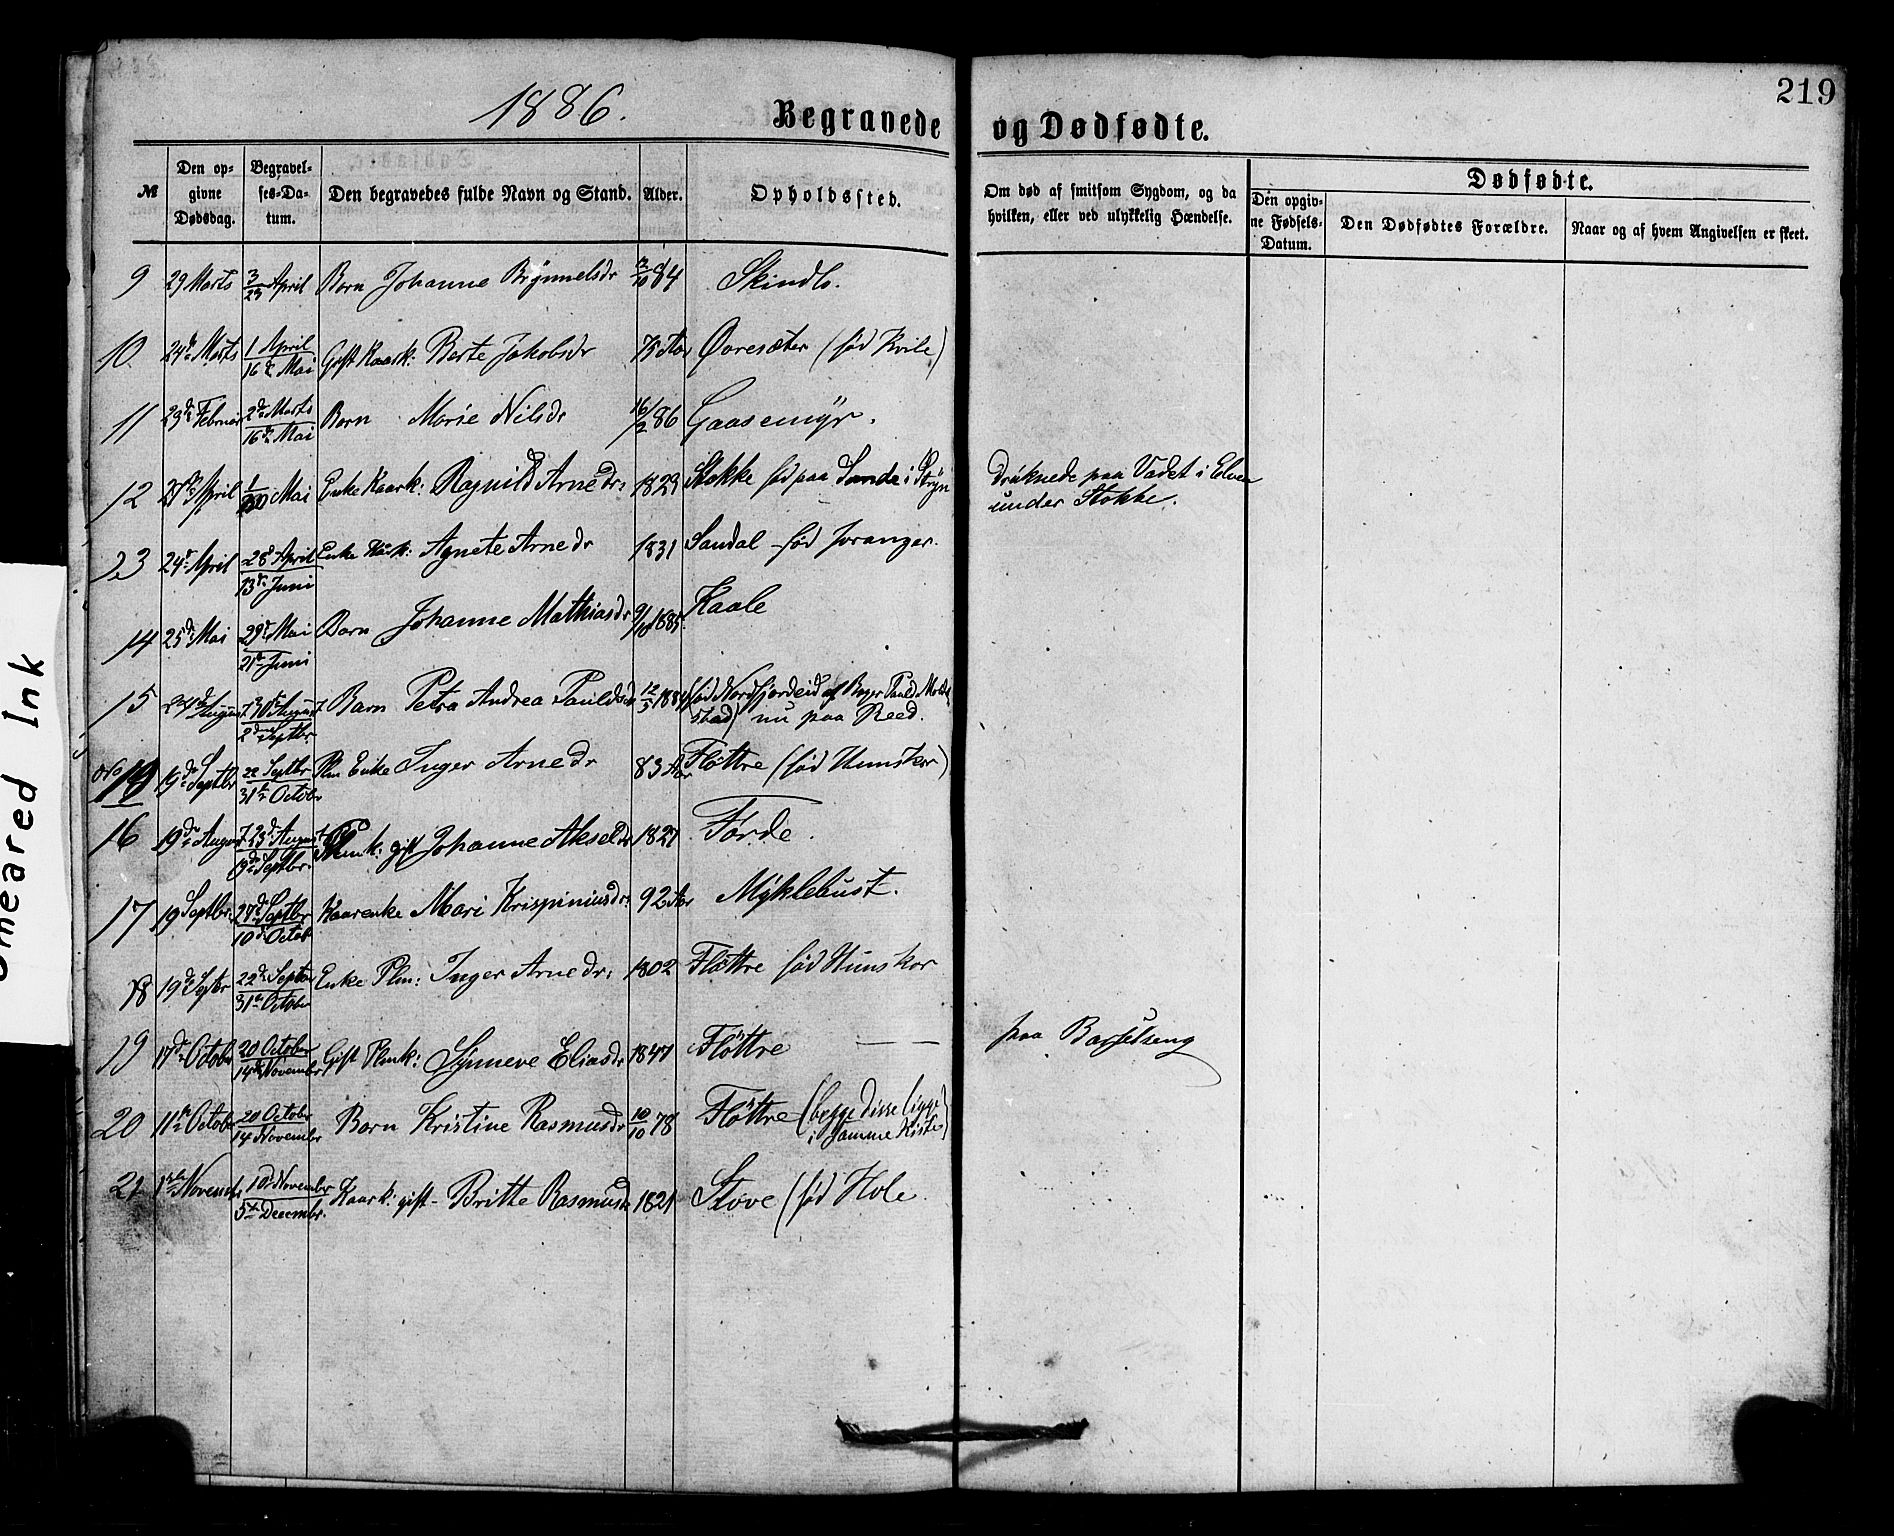 219
1886.
Begravede og Dødfødte.
№
Den op-
givne
Dødsdag.
Begravel-
ses-Da-
tum.
Den begravedes fulde Navn og Stand.
Alder.
Opholdssted.
Om død af smitsom Sygdom, og da
hvilken, eller ved ulykkelig Hændelse.
Dødfødte.
Den opgiv-
ne Fødsels-
Datum.
Den Dødfødtes Forældre.
Naar og af hvem Angivelsen er skeet.
9 29 Marts 3/23 April Barn Johanne Brynnelsdr 84 Skindlo.
10. 24de Marts 1 April / 16de Mai Gift Kaark: Berte Jakobsdr 75 Aar Øvresæter (fød Kvile)
11 23de Februar 2den Marts / 16de Mai Barn Marie Nilsdr 16/2 86 Gaasemyr.
12 27de April Mai Enke Kaark: Ragnild Arnedr: 1829 Stokke fød paa Sande i Stryn Druknede paa Vadet i Elven
under Stokke.
13 24de April 28de April / 13de Juni Enke Kårk: Agnete Arnedr 1831 Sandal fød Joranger.
14 25de Mai 29de Mai / 21de Juni Barn Johanne Mathiasdr 9/10 1885 Kaale
15 24de August 30de August / 2den Septbr. Barn Petra Andrea Paulsdr 12/5 (fød Nordfjordeid af Bager Paul
stad) nu paa Reed.
19de Septbr 22 Septbr / 31te Octobr Plm Enke Inger Arnedr 83 Aar Fløttre (fød Hunskor)
16 19de August 23de August / 19de Septbr. Plmk: gift Johanne Akseldr 1827 Førde.
17 19 Septbr. 27de Septbr / 10de Octob Kaarenke Mari Krispiniusdr: 92 Aar Myklebust.
18 19de Septbr 22de Septbr / 31te Octobr Enke Plm: Inger Arnedr: 1802 Fløttre fød Hunskor
19 17de Octobr 20 Octobr / 14de Novembr Gift Plmk: Synneve Eliasdr 1847 Fløttre — — paa Barselseng
20 11te Octobr 20 Octobr / 14 Novembr Barn Kristine Rasmusdr 10/10 78 Fløttre (begge disse ligge
i samme Kiste)
21 1ste Novembr 10de Novembr / 5te Decembr. Kaark: gift - Britte Rasmusdr 1821 Stove (fød Hole.
Smeared Ink